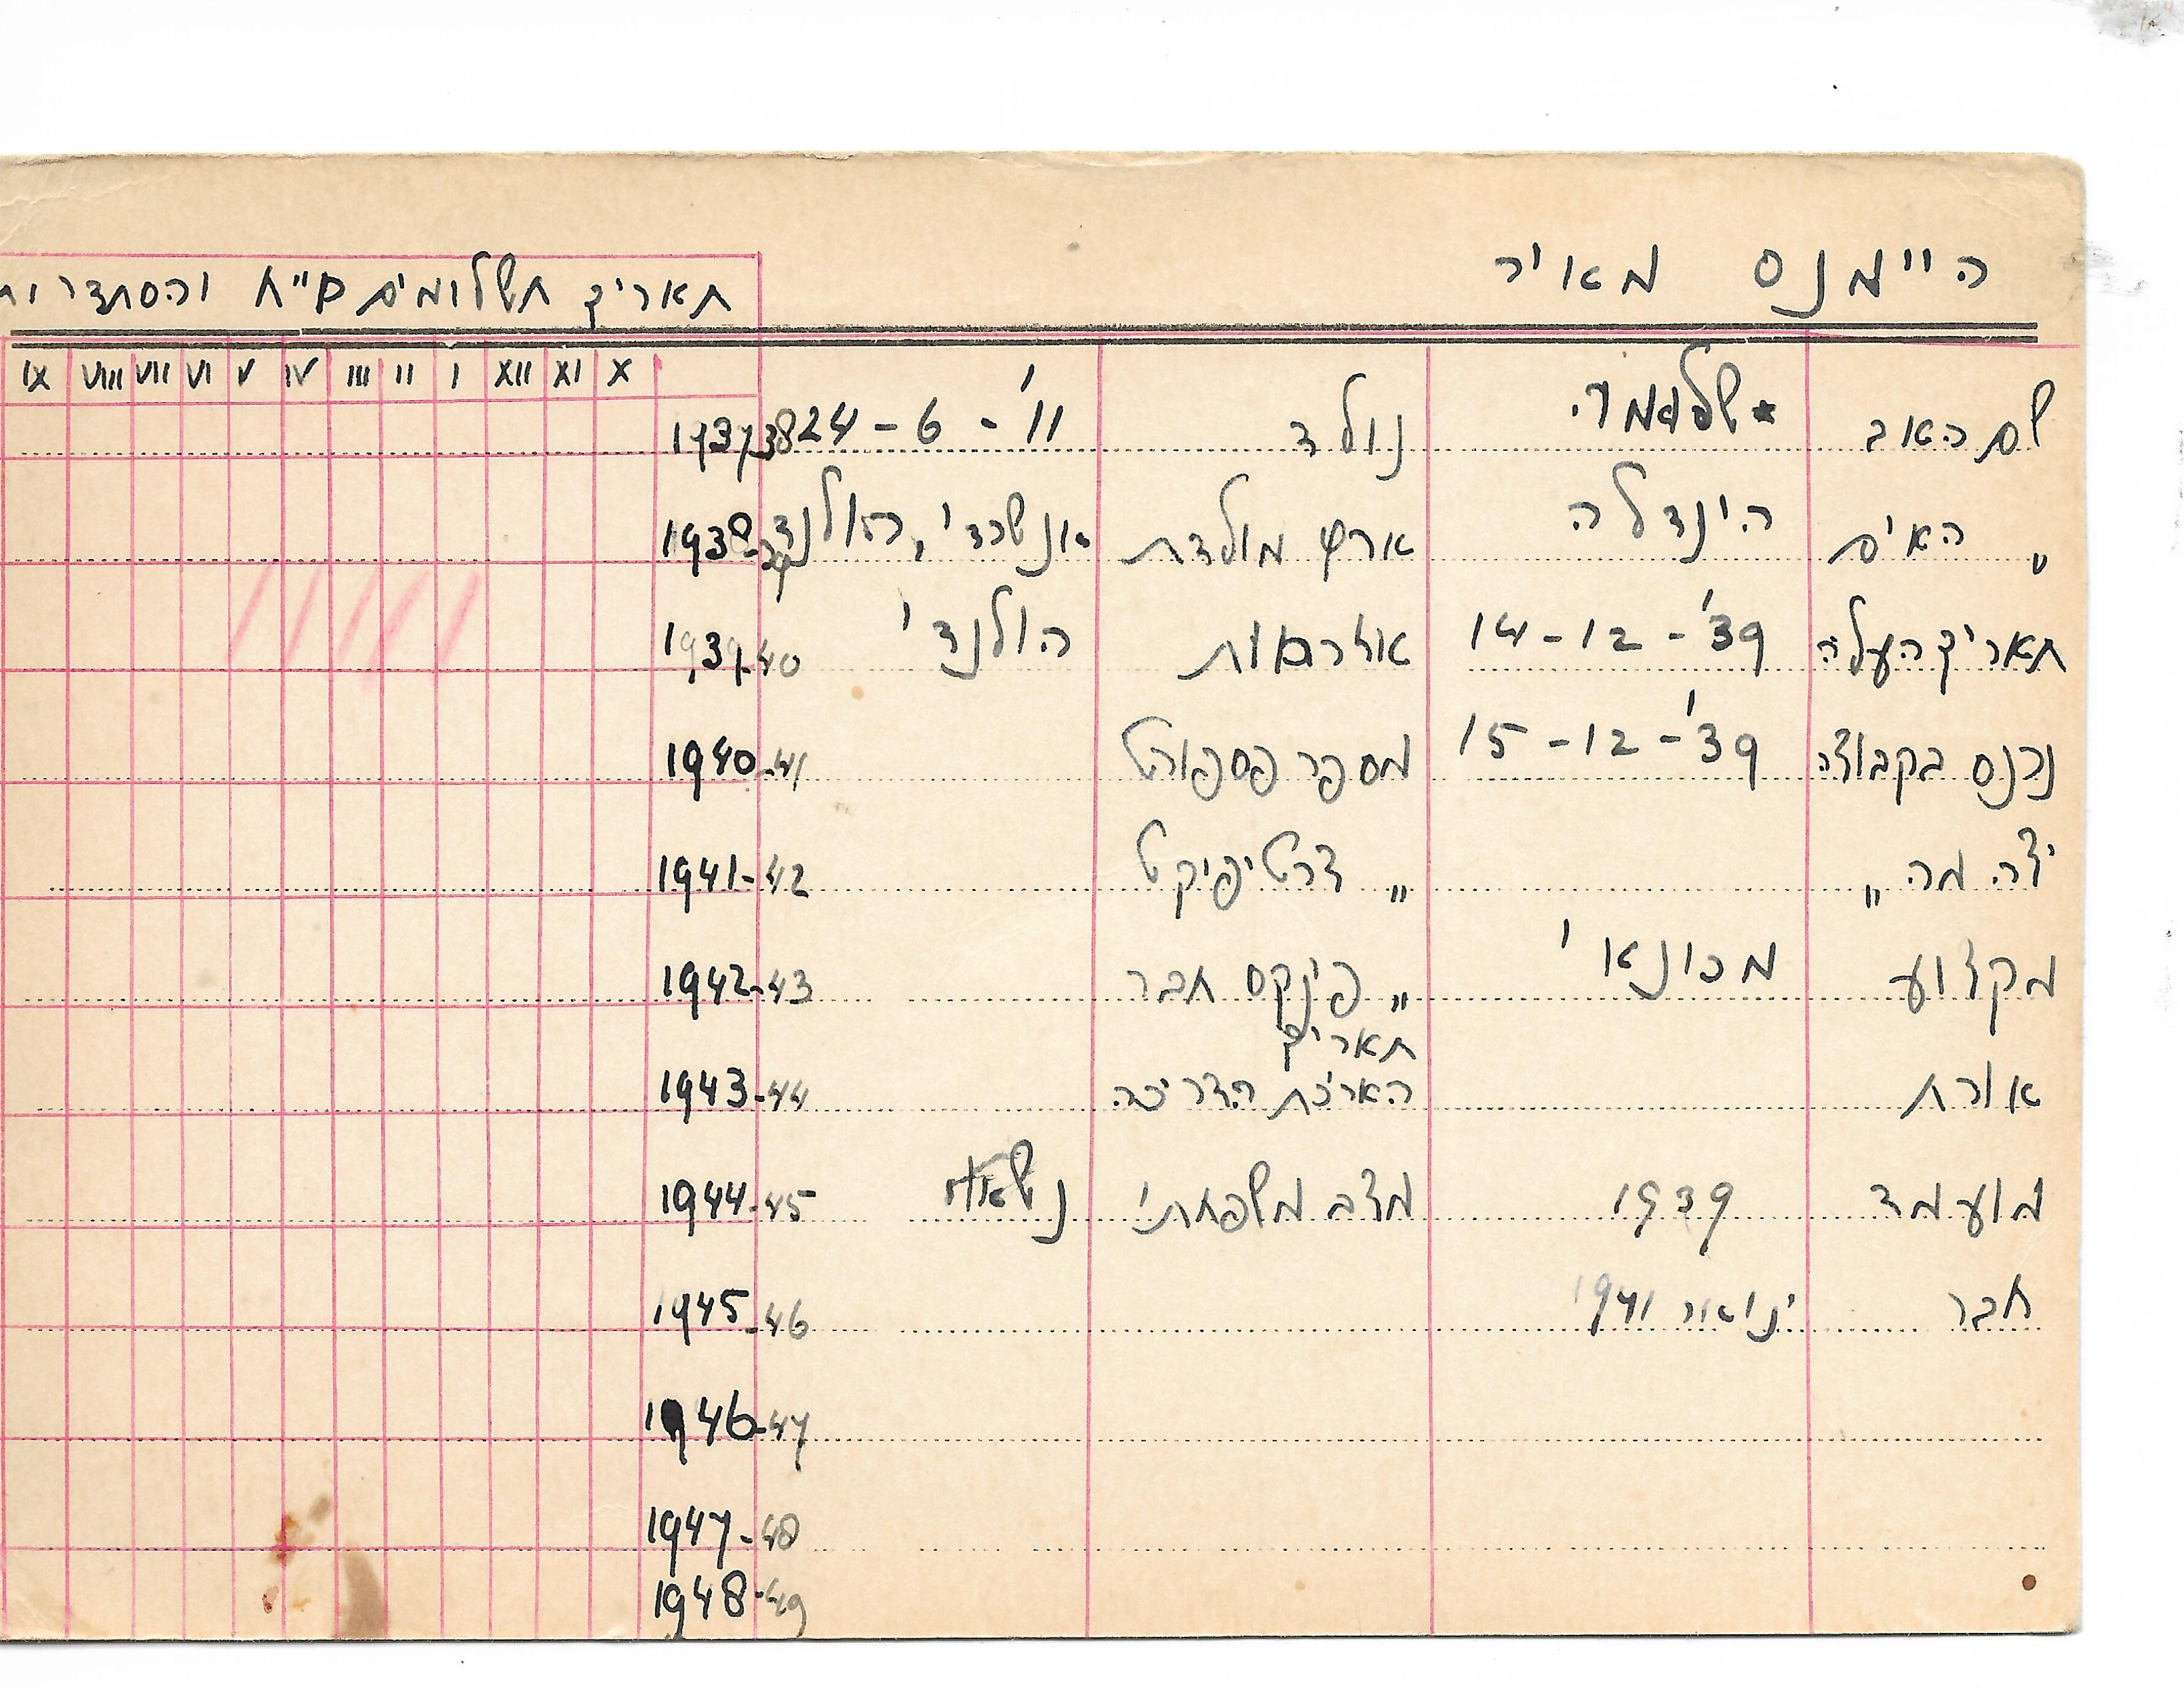 היימנס מאיר
תאריך תשלומים קו"ח והסתדרות
X XI XII I II III IV V VI VII VIII IX
שם האב שלמה נולד 24-6-11' 1937-38
" האים הינדלה ארץ מולדת הולנד 1938-39
תאריך העליה 14-12-39' אזרחות הולנדי 1939-40
נכנס בקבוצה 15-12-39' מספר פספורט 1940-41
יצא מה " " צרטיפיקט 1941-42
מקצוע מכונאי " פינקס חבר 1942-43
תאריך
אורח הארכת הדרכה 1943-44
מועמד 1939 מצב משפחתי נשוי 1944-45
חבר ינואר 1941 1945-46
1946-47
1947-48
1948-49